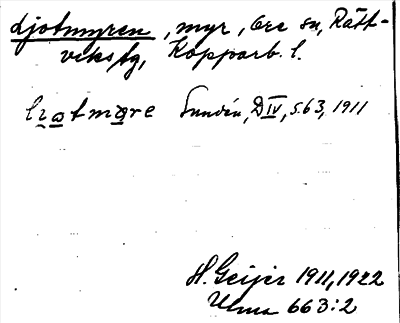 Ljotmyren, myr, Ore sn, Rätt-
viks, tg, Kopparb. l.
Sundén, DIV, s. 63, 1911
H. Geijer 1911, 1922
Ulma 663:2